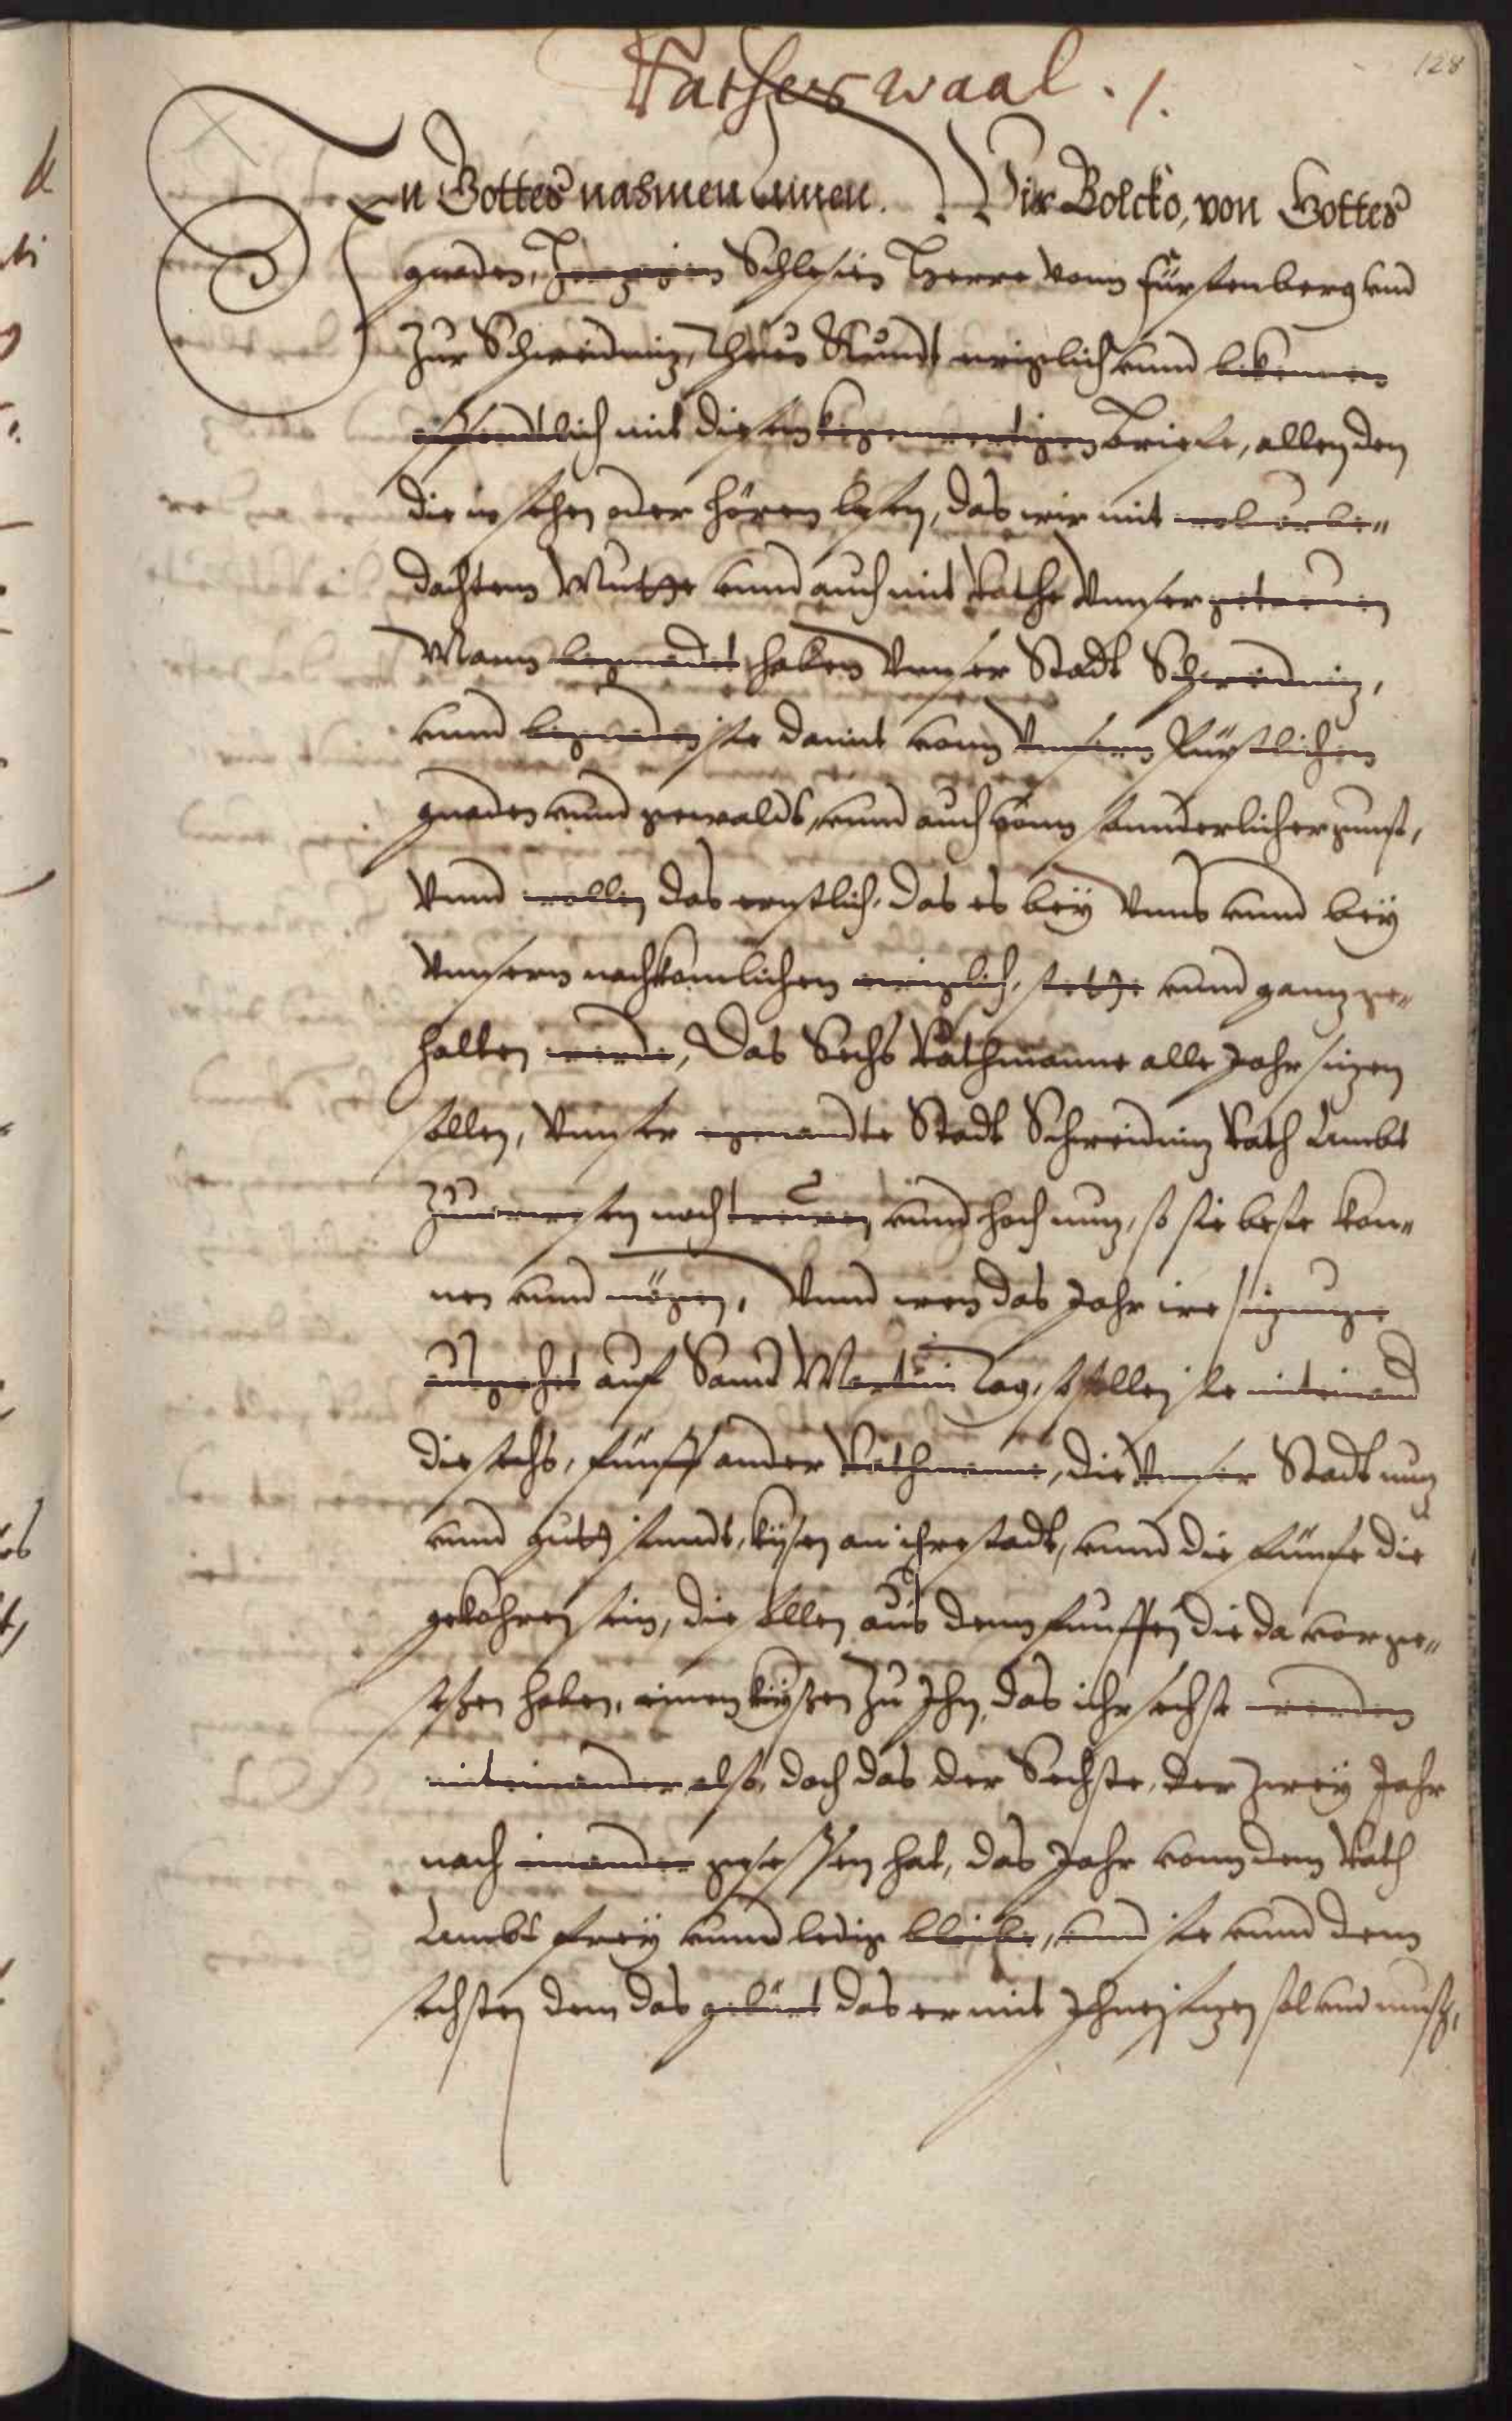 128
Rathes waal. 1.
In Gottes nahmen Amen. Wir Bolcko, von Gottes
gnaden, Herzogen Schlesien Herre vonn Fürstenberg vnd
Zur Schweidnitz, Thuen Kundt ewiglich vnnd bekennen
offendtlich mit diesem kegenwertigen Briefe, allen den
die in sehen oder hören lesen, das wir mit wolvorbe„
dachtem Muthe vnnd auch mit Rathe Vnnser getrewen
Mann begnadet haben Vnnser Stadt Schweidnitz,
vnnd begnaden sie damit vonn Vnnsern Fürstlichen
gnaden vnnd gewalds, vnnd auch vonn sunderlicher gunst,
Vnnd wollen das ernstlich, das es beÿ Vnns vnnd beÿ
Vnnsern nachkomlichen ewiglich, stethe vnnd gantz ge„
halten werde, Das Sechs Rathmanne alle Jahr sitzen
sollen, Vnnser egenandte Stadt Schweidnitz Rath Ambt
Zuuorwesen nach trewen vnnd hoch nutz, so sie beste kon„
nen vnnd mögen, Vnnd wen das Jahr ire sitzunge
ausgehet auf Sand Martini Tag, so sollen sie miteinand
die sechs, fünff ander Rathmanne, die Vnnser Stadt nutz
vnnd gutt seindt, kysen an ihre stadt, vnnd die fünfe die
gekohren sein, die sollen aus denn funffen die da vor ge„
sessen haben, einen kysen Zu Jhn, das ihr sechse werden
miteinander also, doch das der Sechste, der zweÿ Jahr
nach einander gesessen hat, das Jahr vonn dem Rath
Ambt freÿ vnnd ledig bleibe, vnnd sie vnnd dem
sechsten dem das gebürt das er mit Jhnen sitzen sol vnd muss,